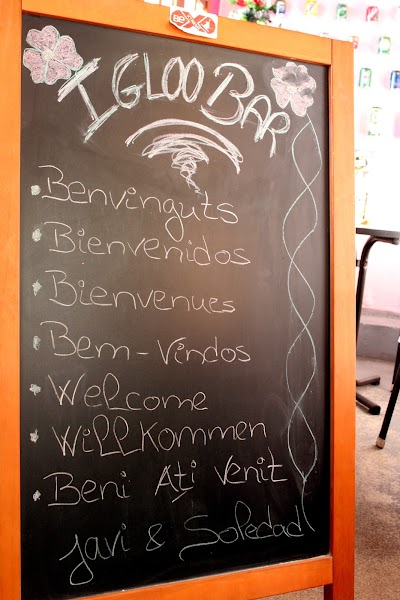 Igloo Bar
Benvinguts
Bienvenidos
Bienvenues
Bem-Vindos
Welcome
Willkommen
Beni Ati Venit
Javi & Soledad